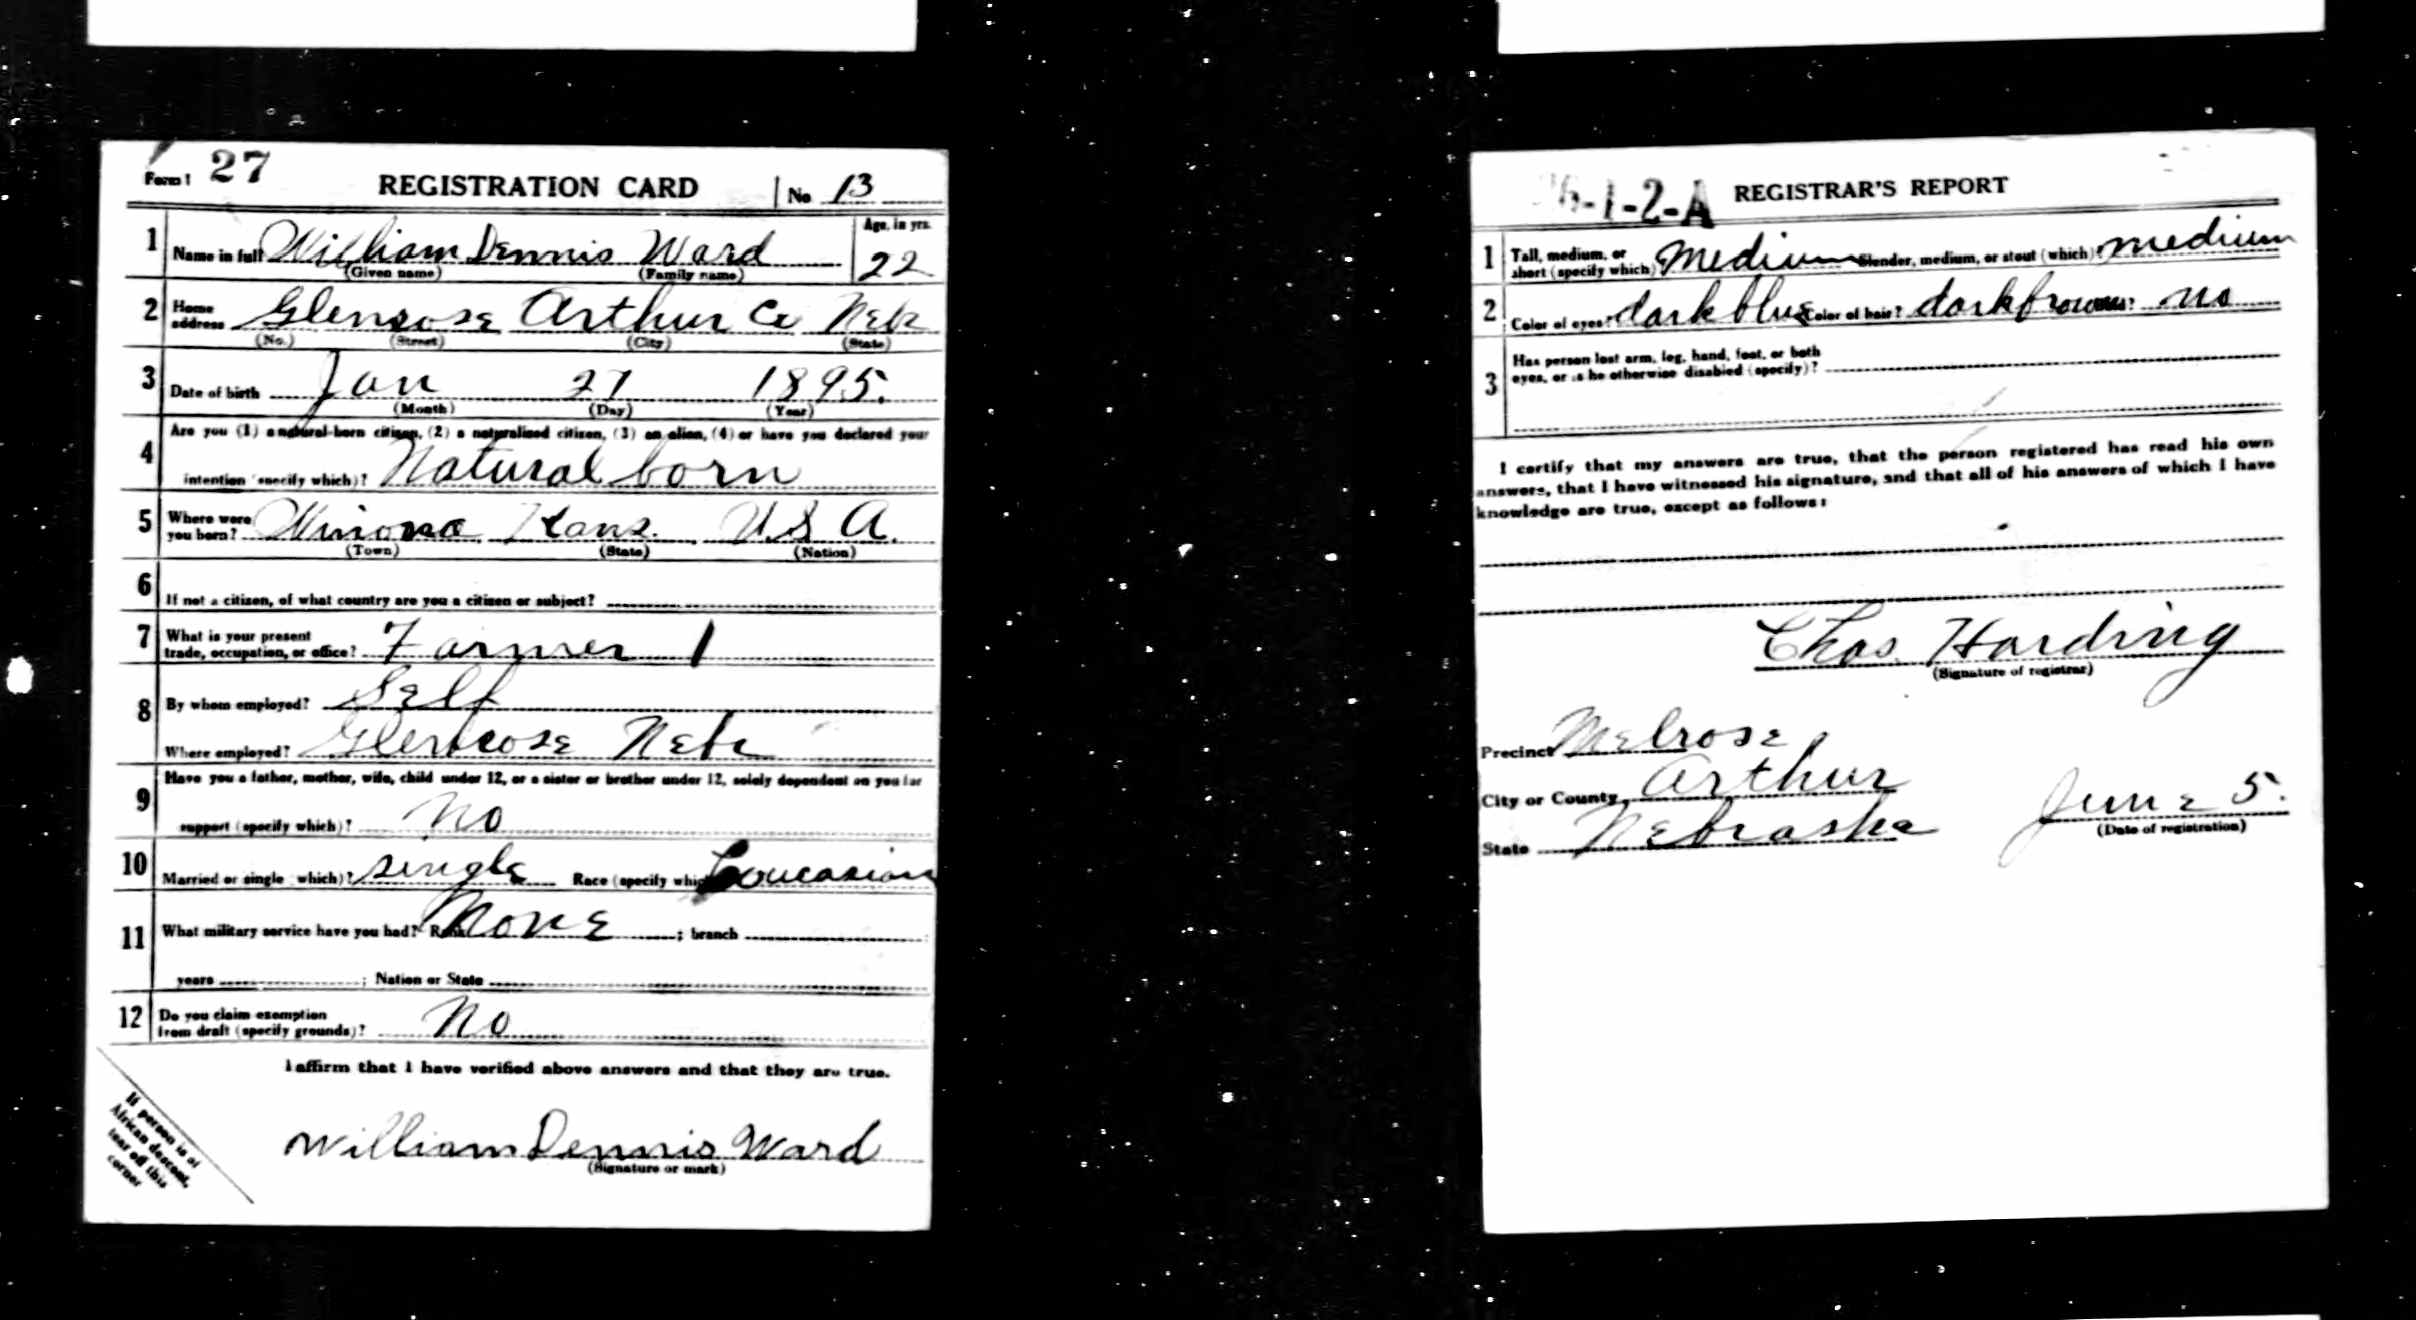 Form 1 27 REGISTRATION CARD No 13
1 Name in full William Dennis Ward Age, in yrs. 22
(Given name) (Family name)
2 Home address Glenrose Arthur Co Neb
(No.) (Street) (City) (State)
3 Date of birth Jan 27 1895.
(Month) (Day) (Year)
4 Are you (1) a natural-born citizen, (2) a naturalized citizen, (3) an alien, (4) or have you declared your
intention (specify which)? Natural born
5 Where were you born? Winona Kans. U.S A.
(Town) (State) (Nation)
6 If not a citizen, of what country are you a citizen or subject?
7 What is your present trade, occupation, or office? Farmer 1
8 By whom employed? Self
Where employed? Glenrose Nebr
9 Have you a father, mother, wife, child under 12, or a sister or brother under 12, solely dependent on you for
support (specify which)? no
10 Married or single (which)? single Race (specify which) Coucasian
11 What military service have you had? Rank None ; branch
years ; Nation or State
12 Do you claim exemption from draft (specify grounds)? No
I affirm that I have verified above answers and that they are true.
William Dennis Ward
(Signature or mark)
If person is of
African descent,
tear off this
corner
-1-2-A REGISTRAR'S REPORT
1 Tall, medium, or short (specify which) Medium Slender, medium, or stout (which)? medium
2 Color of eyes? dark blue Color of hair? dark brown ? no
3 Has person lost arm, leg, hand, foot, or both
eyes, or is he otherwise disabled (specify)?
I certify that my answers are true, that the person registered has read his own
answers, that I have witnessed his signature, and that all of his answers of which I have
knowledge are true, except as follows:
Chas Harding
(Signature of registrar)
Precinct Melrose
City or County Arthur
State Nebraska June 5.
(Date of registration)